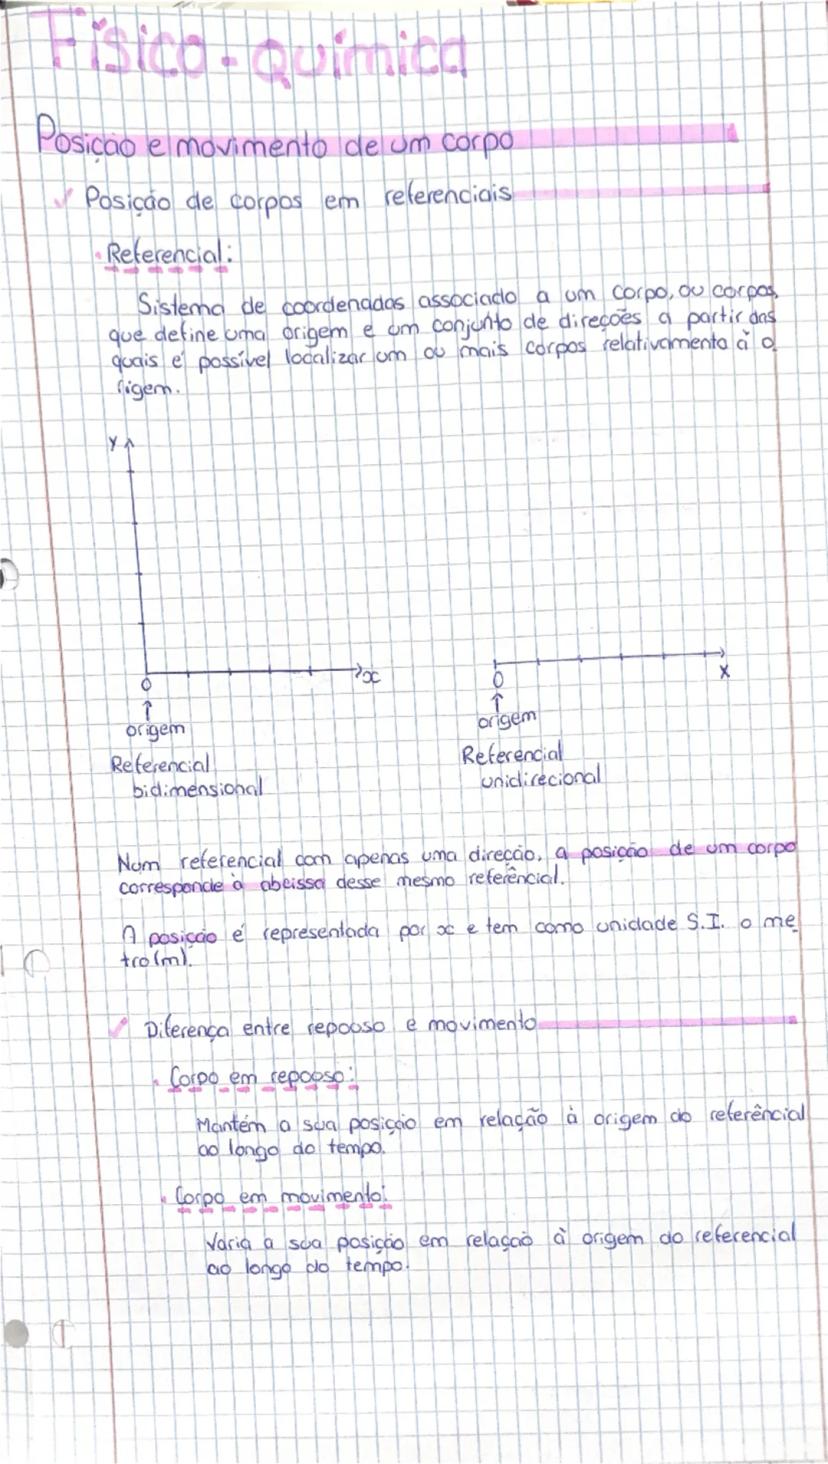 Físico-química
Posição e movimento de um corpo
Posição de corpos em referenciais
Referencial:
Sistema de coordenadas associado a um corpo, ou corpos,
que define uma origem e um conjunto de direções a partir das
quais é possível localizar um ou mais corpos relativamente à o
rigem.
Y
x
0
origem
Referencial
bidimensional
X
0
origem
Referencial
unidirecional
Num referencial com apenas uma direção, a posição de um corpo
corresponde à abcissa desse mesmo referêncial.
A posição é representada por x e tem como unidade S.I. o me
tro(m).
Diferença entre repouso e movimento
Corpo em repouso:
Mantém a sua posição em relação à origem do referêncial
ao longo do tempo.
Corpo em movimento:
Varia a sua posição em relação à origem do referencial
ao longo do tempo.